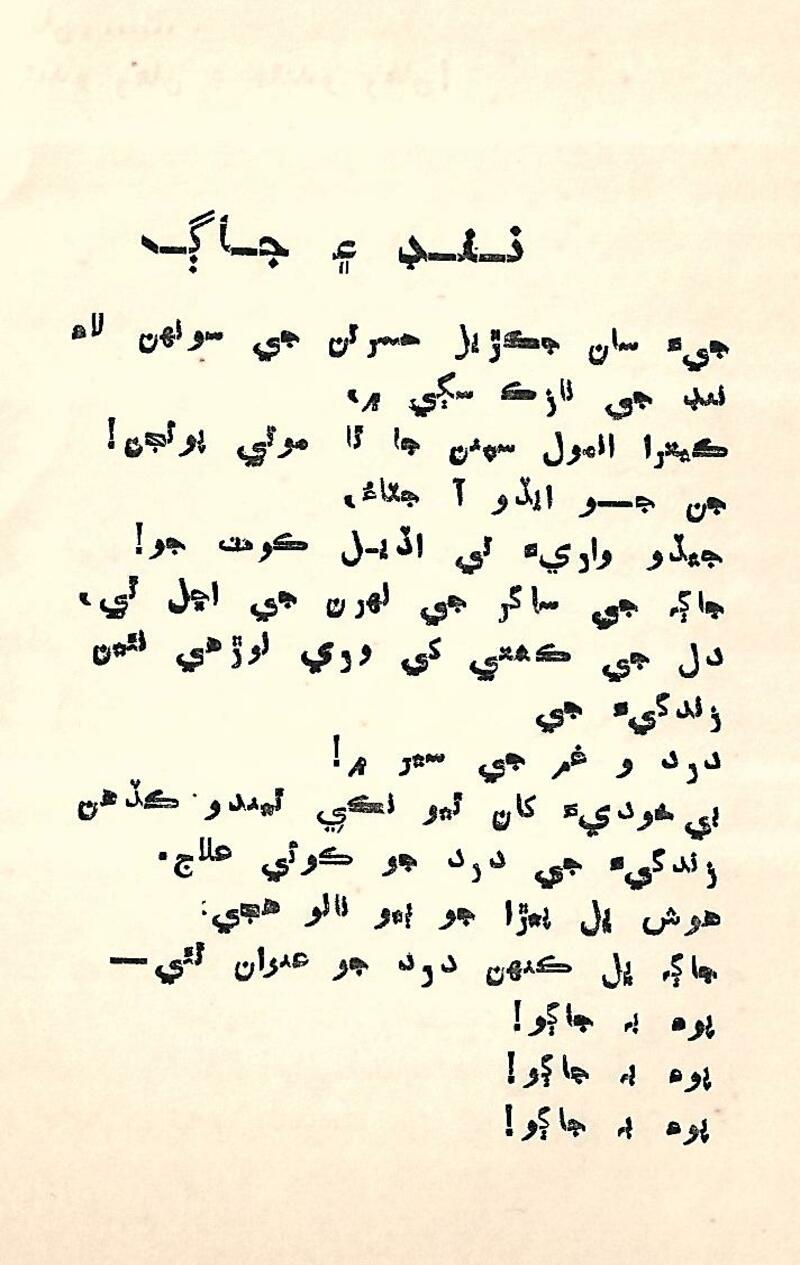 ننڊ ۽ جاڳ
جيءَ سان جڪڙيل حسرتن جي سونهن لاءِ
ننڊ جي نازڪ سڳي ۾،
ڪيترا املهه سپنن جا ٿا موتي پوئجن!
جن جو ايڏو آ جٽاءُ،
جيڏو واريءَ تي اڏيل ڪوٽ جو!
جاڳ جي ساگر جي لهرن جي اڇل ئي،
دل جي ڪشتي کي وري لوڙهي نئين
زندگيءَ جي
درد و غم جي سير ۾!
بي خوديءَ کان ٿيو نڪي ٿيندو ڪڏهن
زندگيءَ جي درد جو ڪوئي علاج.
هوش ڀل پيڙا جو ٻيو نالو هجي:
جاڳ ڀل ڪنهن درد جو عنوان ٿئي—
پوءِ بہ جاڳو!
پوءِ بہ جاڳو!
پوءِ بہ جاڳو!